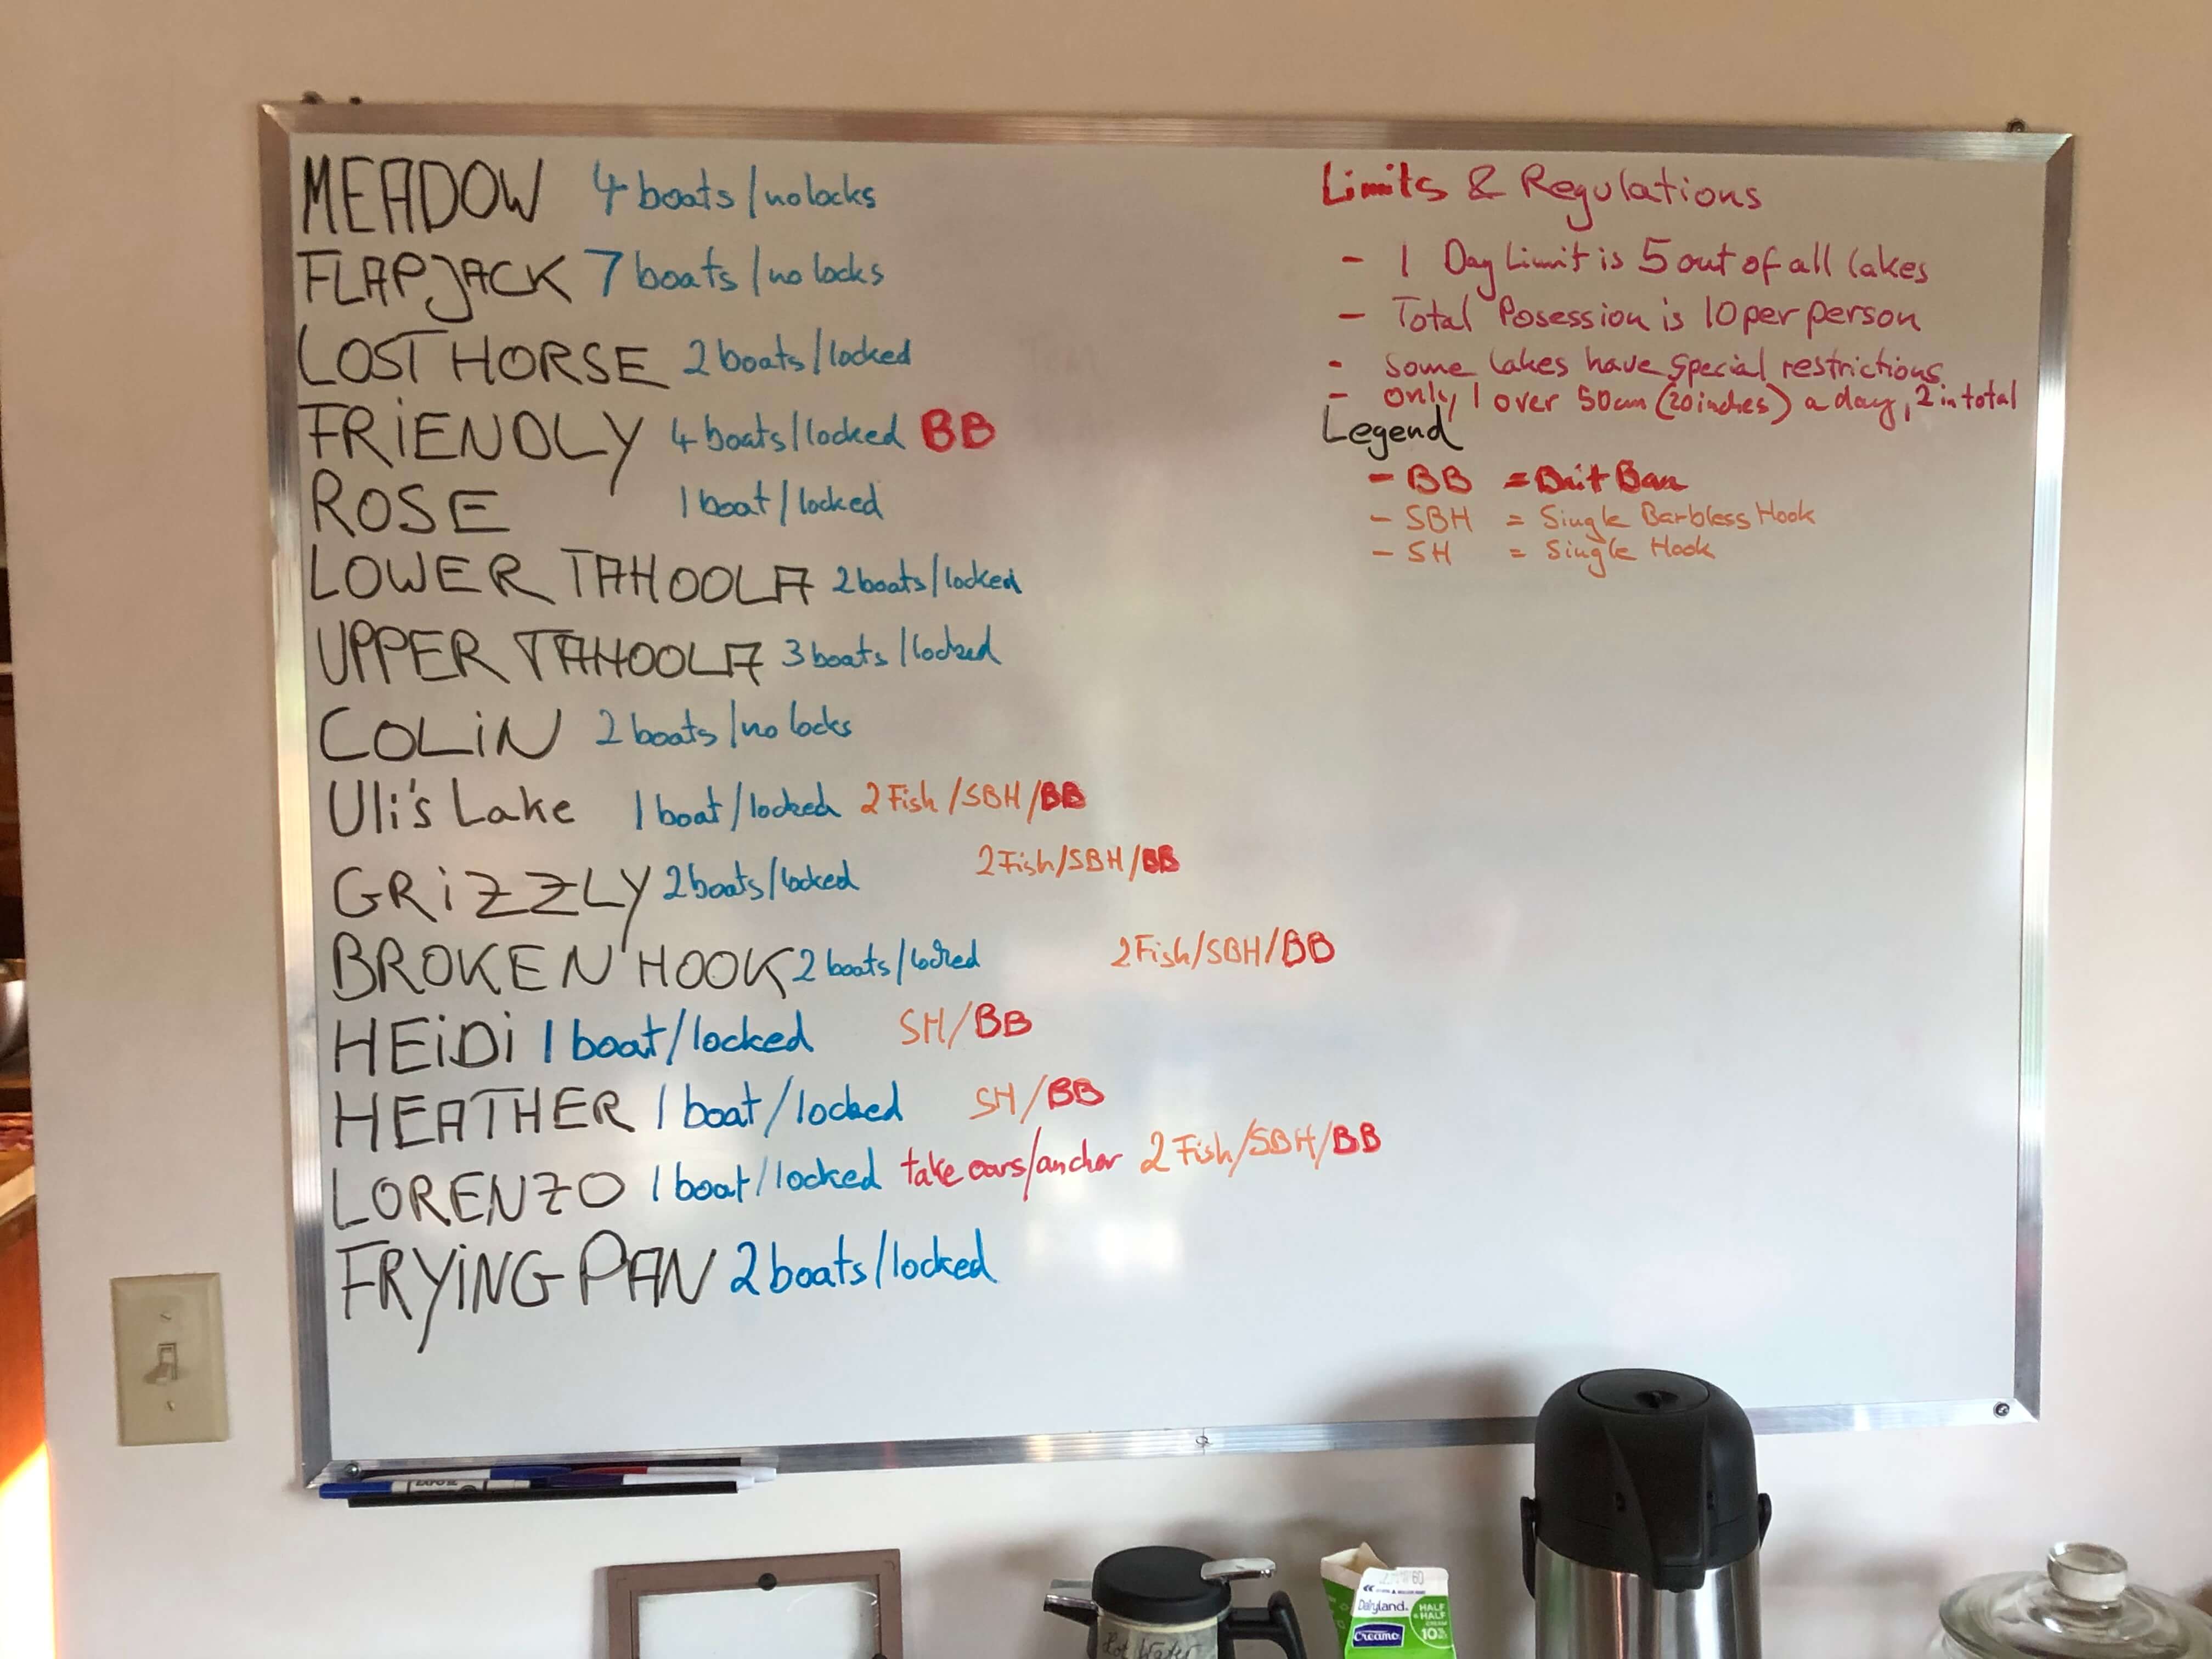 MEADOW 4 boats/no locks
FLAPJACK 7 boats/no locks
LOST HORSE 2 boats/locked
FRiENDLY 4 boats/locked BB
ROSE 1 boat/locked
LOWER TAHOOLA 2 boats/locked
UPPER TAHOOLA 3 boats/locked
COLiN 2 boats/no locks
Uli's Lake 1 boat/locked 2 Fish/SBH/BB
GRiZZLY 2 boats/locked 2 Fish/SBH/BB
BROKEN HOOK 2 boats/locked 2 Fish/SBH/BB
HEiDi 1 boat/locked SH/BB
HEATHER 1 boat/locked SH/BB
LORENZO 1 boat/locked take oars/anchor 2 Fish/SBH/BB
FRYiNG PAN 2 boats/locked
Limits & Regulations
- 1 Day Limit is 5 out of all lakes
- Total Posession is 10 per person
- some lakes have special restrictions
- only 1 over 50cm (20 inches) a day, 2 in total
Legend
- BB = Bait Ban
- SBH = Single Barbless Hook
- SH = Single Hook
EXPO
Hot Water
Dairyland.
HALF & HALF
CREAM
10%
Creamo